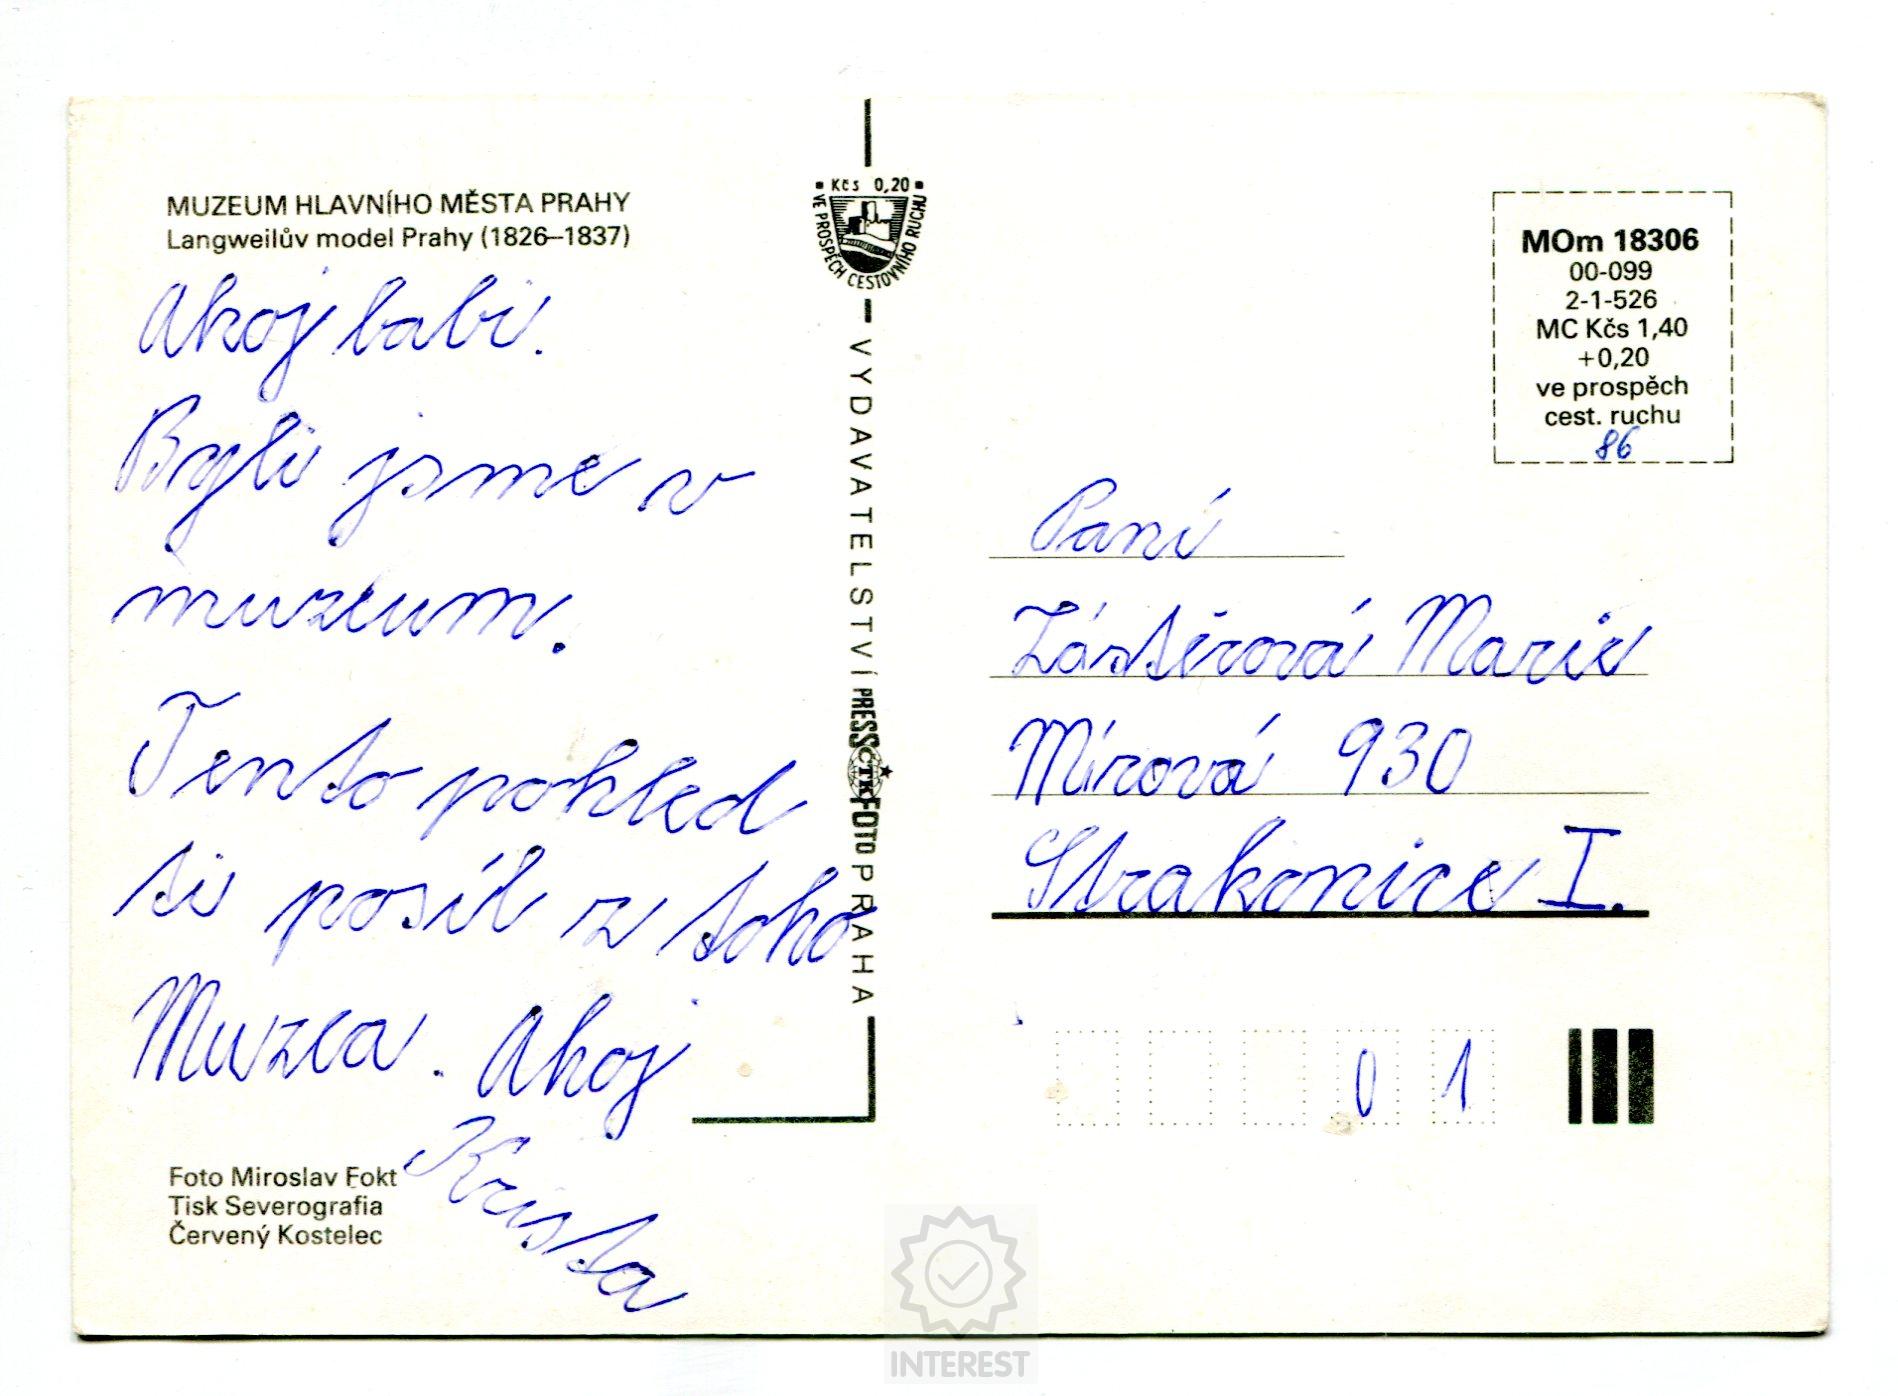 MUZEUM HLAVNÍHO MĚSTA PRAHY
Langweilův model Prahy (1826–1837)
Ahoj babi.
Byli jsme v
muzeum.
Tento pohled
ti posíl z toho
Muzea. Ahoj
Krista
Foto Miroslav Fokt
Tisk Severografia
Červený Kostelec
Kčs 0,20
VE PROSPĚCH CESTOVNÍHO RUCHU
VYDAVATELSTVÍ PRESSFOTO PRAHA
ČTK
MOm 18306
00-099
2-1-526
MC Kčs 1,40
+0,20
ve prospěch
cest. ruchu
86
Paní
Zástěrová Marie
Mírová 930
Strakonice I.
0 1
INTEREST